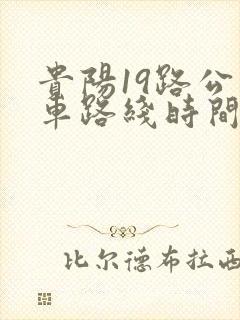 貴陽19路公
車路綫時間
比尔德布拉西